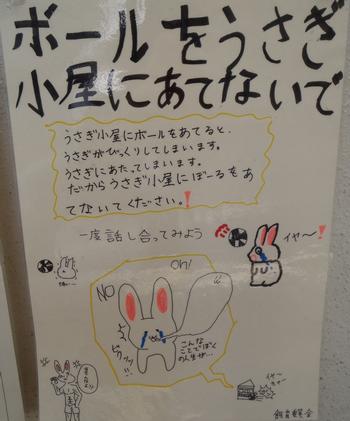 ボールをうさぎ
小屋にあてないで
うさぎ小屋にボールをあてると、
うさぎがびっくりしてしまいます。
うさぎにあたってしまいます。
だからうさぎ小屋にぼーるをあ
てないでください。!
一度話し合ってみよう
イヤ〜!
NO
Oh!
こんな
ことでぼく
の人生が…
飼育委員会